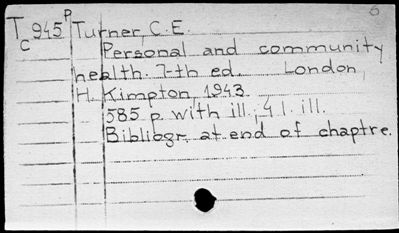 6
T 945 P Turner, C.E.
C
Personal and community
health. 7-th ed. London,
H. Kimpton, 1943.
585 p. with ill.; 4 l. ill.
Bibliogr. at end of chaptre.